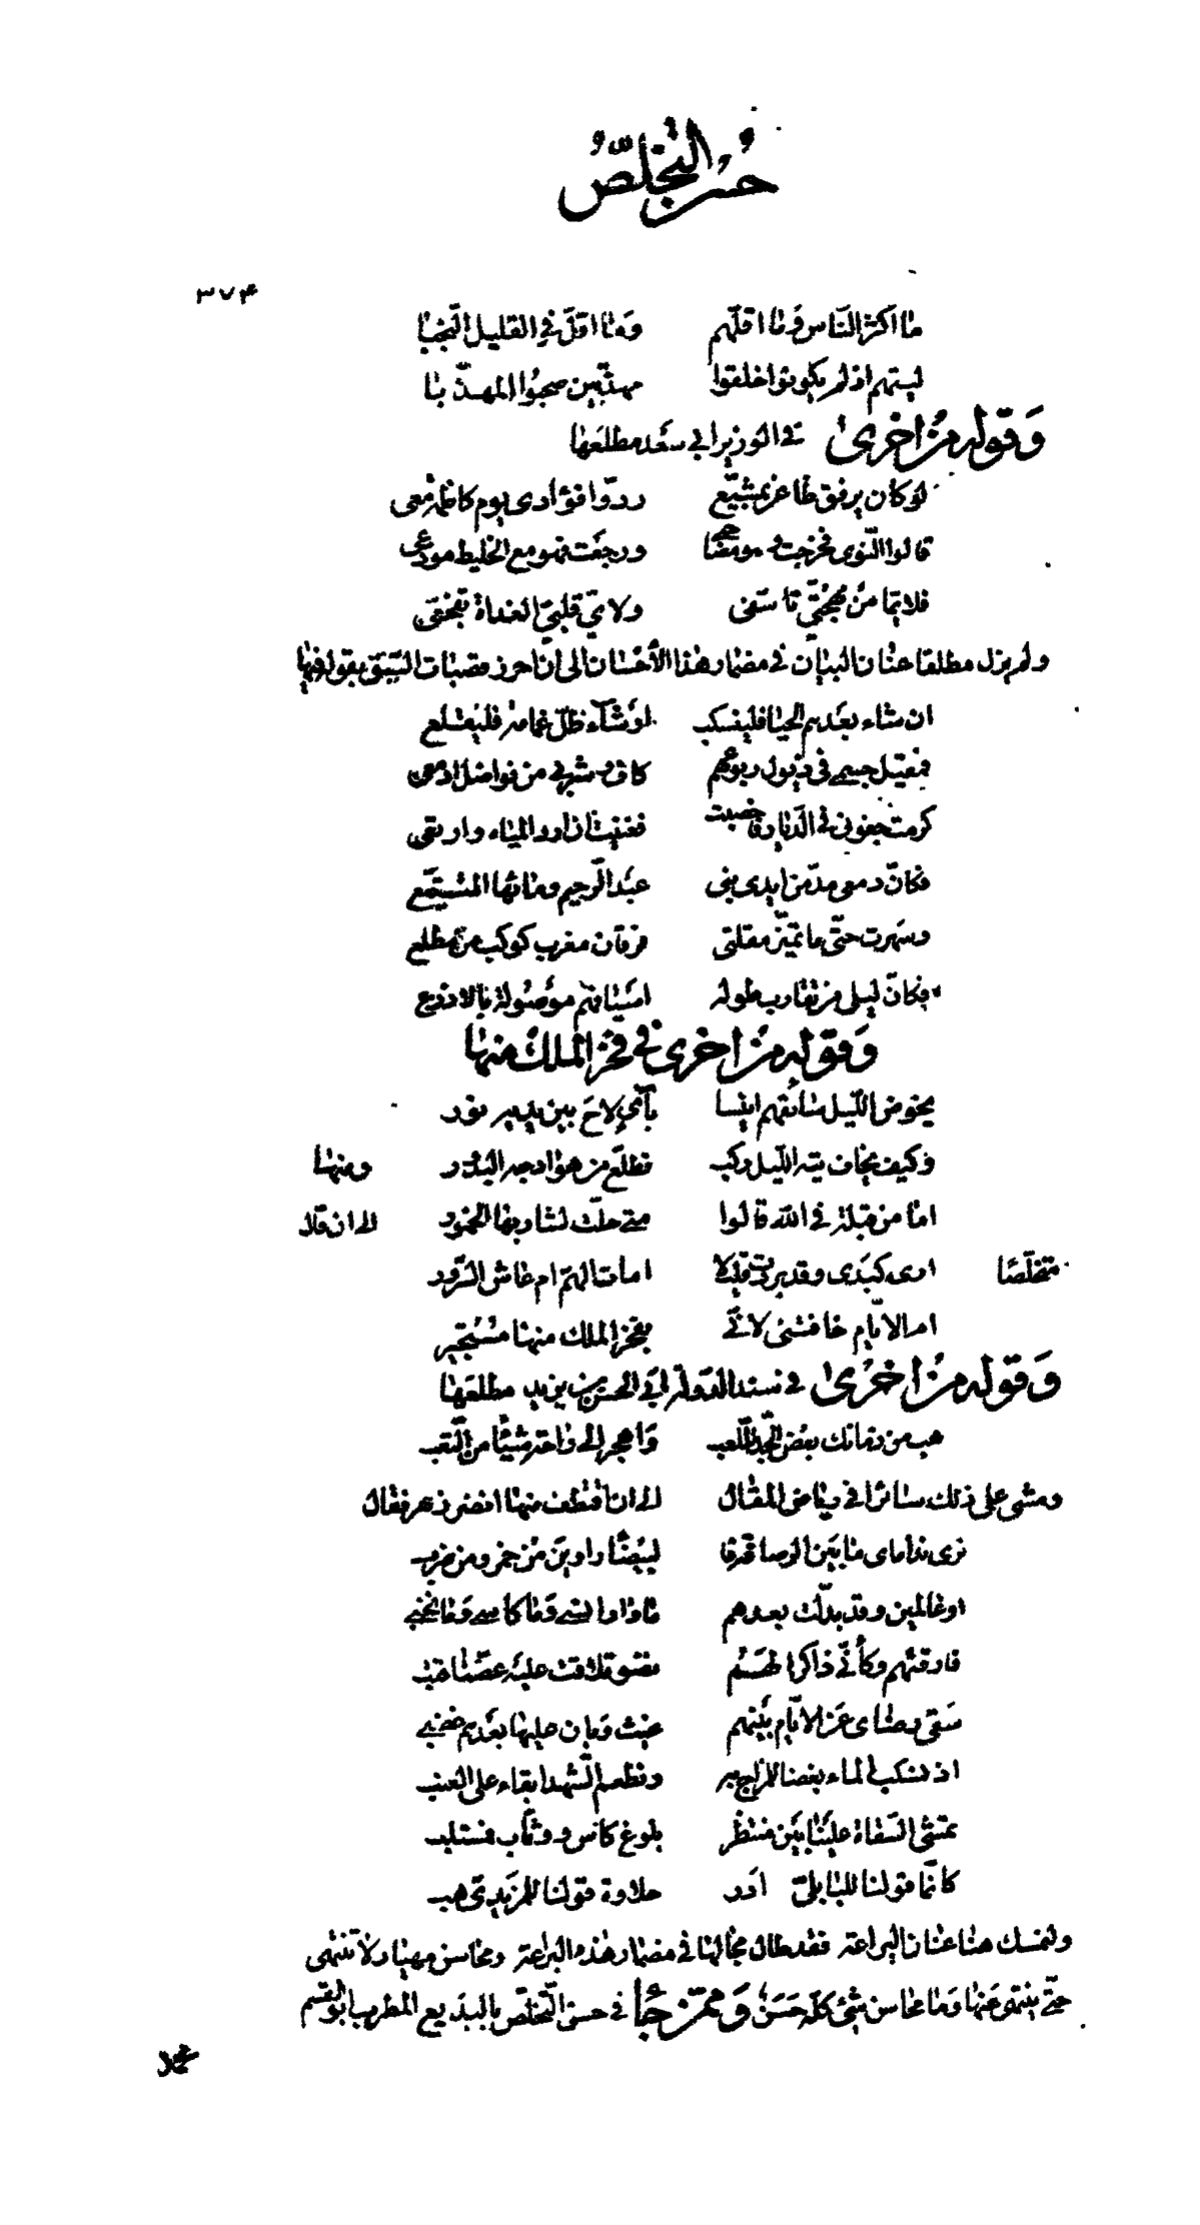 حُسْن التَّخَلُّصُ
٣٧۴
ما اكثر النّاس وَما اقلّهم وَما اقلّ في القليل النّجبا
ليتهم اذ لم يكونوا خلقوا مهذّبين صحبُوا المهذّبا
وَقوله من اخرىٰ في الوزير ابي سعَد مطلعَها
لو كان يرفق ظاعن بمشيّع ردّوا فؤادى يوم كاظمة معى
قالوا النّوى فخرجت وهو مصاحبى ورجعَت وهو مع الخليط مودّعى
فلايّما من مهجتي تاسّفى ولايّ قلبيّ الغداة تفجّعى
ولم يزل مطلقا عنان البيان في مضمار هذا الأحسان الى ان احرز قصبات السّبق بقوله فيها
ان شاء بعدهم الحيا فلينسكب او شاء ظلّ غمامة فليقلع
فمقيل جسمى فى ذيول ربوعهم كاف وشربى من فواضل ادمعى
كرمت جفونى فى الديار فاخصبت فغنيت ان ارد المياه وارتعى
فكانّ دمعى مدّ من ايدى بنى عبَد الرّحيم ومائها المتنبّع
وسهرت حتّى ما تميّز مقلتى فرقان مغرب كوكب من مطلع
فكانّ ليلى من تقارب طوله اسيافهم موصُولة بالاذرع
وَقوله من اخرى في فخر الملك منها
يخوض الليل سائقهم انيسا بآيٍ لاحَ بين يديه نور
وكيف يخاف تيه الليل ركب تطلّع من هوادجه البدُور ومنها
اما من قبلة في الله قالوا متى حلّت لشاربها الخمور الى ان قال
متخلّصًا ارى كبدى وقد بردت قليلا امات الهمّ ام عاش السّرور
ام الايّام خافتنى لانّي بفخر الملك منها مستجير
وَقوله من اخرىٰ في سند الدّولة ابي الحسن بن مزيد مطلعَها
هب من زمانك بعض الجدّ للّعب وَاهجر الى راحة شيئًا من التّعب
ومشى على ذلك سائرا في رياض المقال الى ان اقتطف منها انضر زهر فقال
ترى نداماى ما بَين الرصافة فا لبيضاء راوين من خمر ومن طرب
او عالمين وقد بدّلت بعدهم ما دار انسى وَما كاسى وَما نخبى
فارقتهم وكأنّي ذاكرا لهم نضو تلاقت عليه عضّتا قتب
سَقى رضاى عن الايّام بَينهم غيث وَبان عليها بعَدهم غضبى
اذ نسكب الماء بغضا للمزاج به ونطعم الشّهد ابقاء على العنب
تمشى السّقاة علينا بَين منتظر بلوغ كاس ووثّاب فمستلب
كانّما قولنا للبابليّ ادر حلاوة قولنا للمزيديّ هب
ولنمسك هنا عنان اليراعة فقد طال مجالها في مضمار هذه البراعة ومحاسن مهيار لا تنتهى
حتّى ينتهى عَنها وَما محاسن شئ كلّه حَسَنُ وَممّن جَلّا في حسن التّخلّص بالبدَيع المطرب ابو القسم
محمد